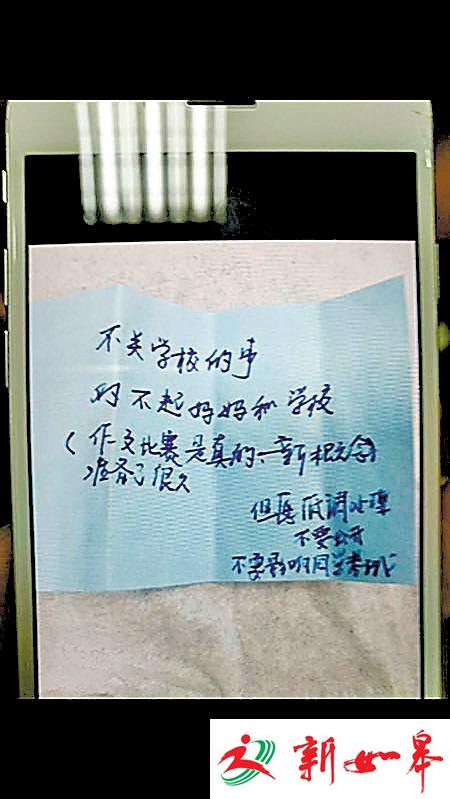 不关学校的事
对不起妈妈和学校
(作文比赛是真的、新概念
准备了很久
但愿低调处理
不要公开
不要影响同学考试
新如皋